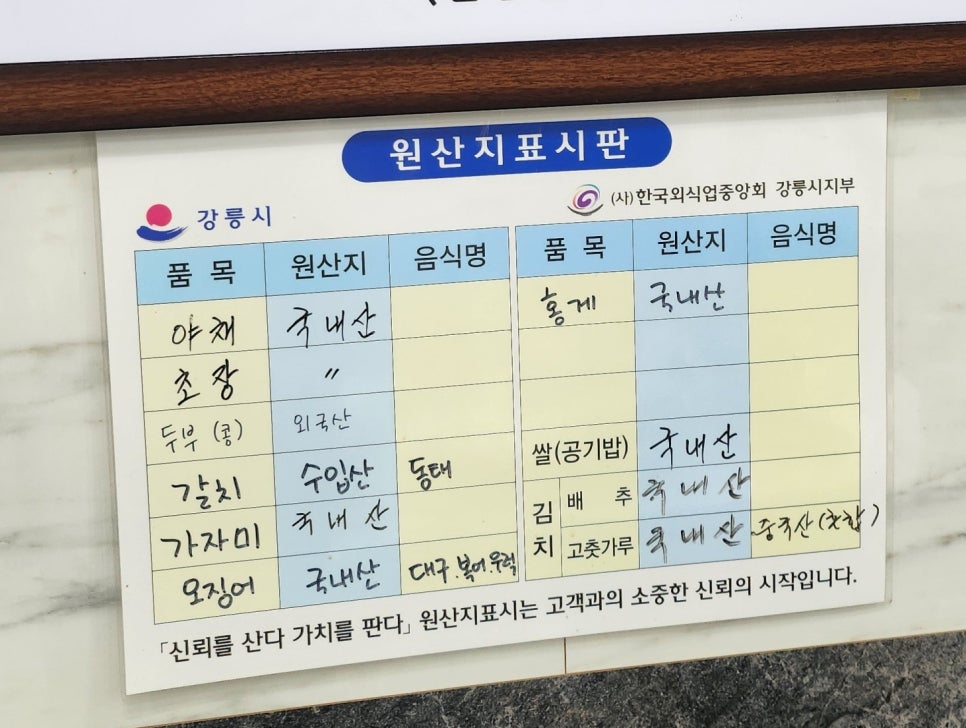 원산지표시판
강릉시
(사)한국외식업중앙회 강릉시지부
품 목 원산지 음식명
야채 국내산
초장 〃
두부 (콩) 외국산
갈치 수입산 동태
가자미 국내산
오징어 국내산 대구.복어.우럭
품 목 원산지 음식명
홍게 국내산
쌀(공기밥) 국내산
김치 배 추 국내산
고춧가루 국내산 중국산
「신뢰를 산다 가치를 판다」 원산지표시는 고객과의 소중한 신뢰의 시작입니다.